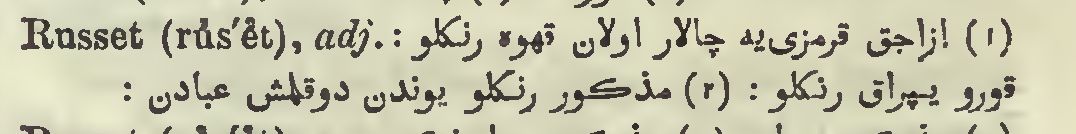 Russet (rŭs′ĕt), adj.: (١) ازاجق قرمزی‌یه چالار اولان قهوه رنكلو
قورو يپراق رنكلو : (٢) مذكور رنكلو يوندن دوقلمش عبادن :